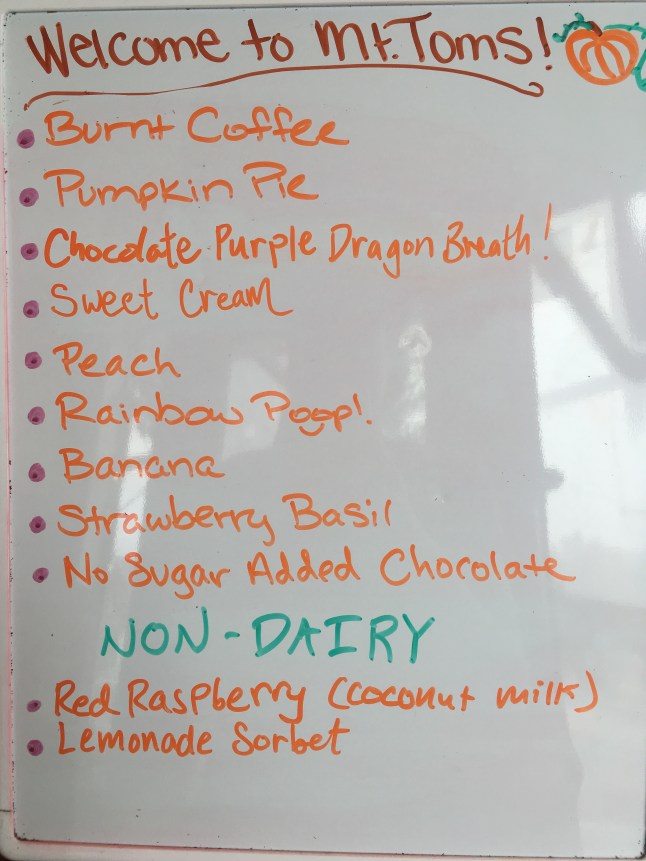 Welcome to Mt. Toms!
• Burnt Coffee
• Pumpkin Pie
• Chocolate Purple Dragon Breath!
• Sweet Cream
• Peach
• Rainbow Poop!
• Banana
• Strawberry Basil
• No Sugar Added Chocolate
NON-DAIRY
• Red Raspberry (coconut milk)
• Lemonade Sorbet